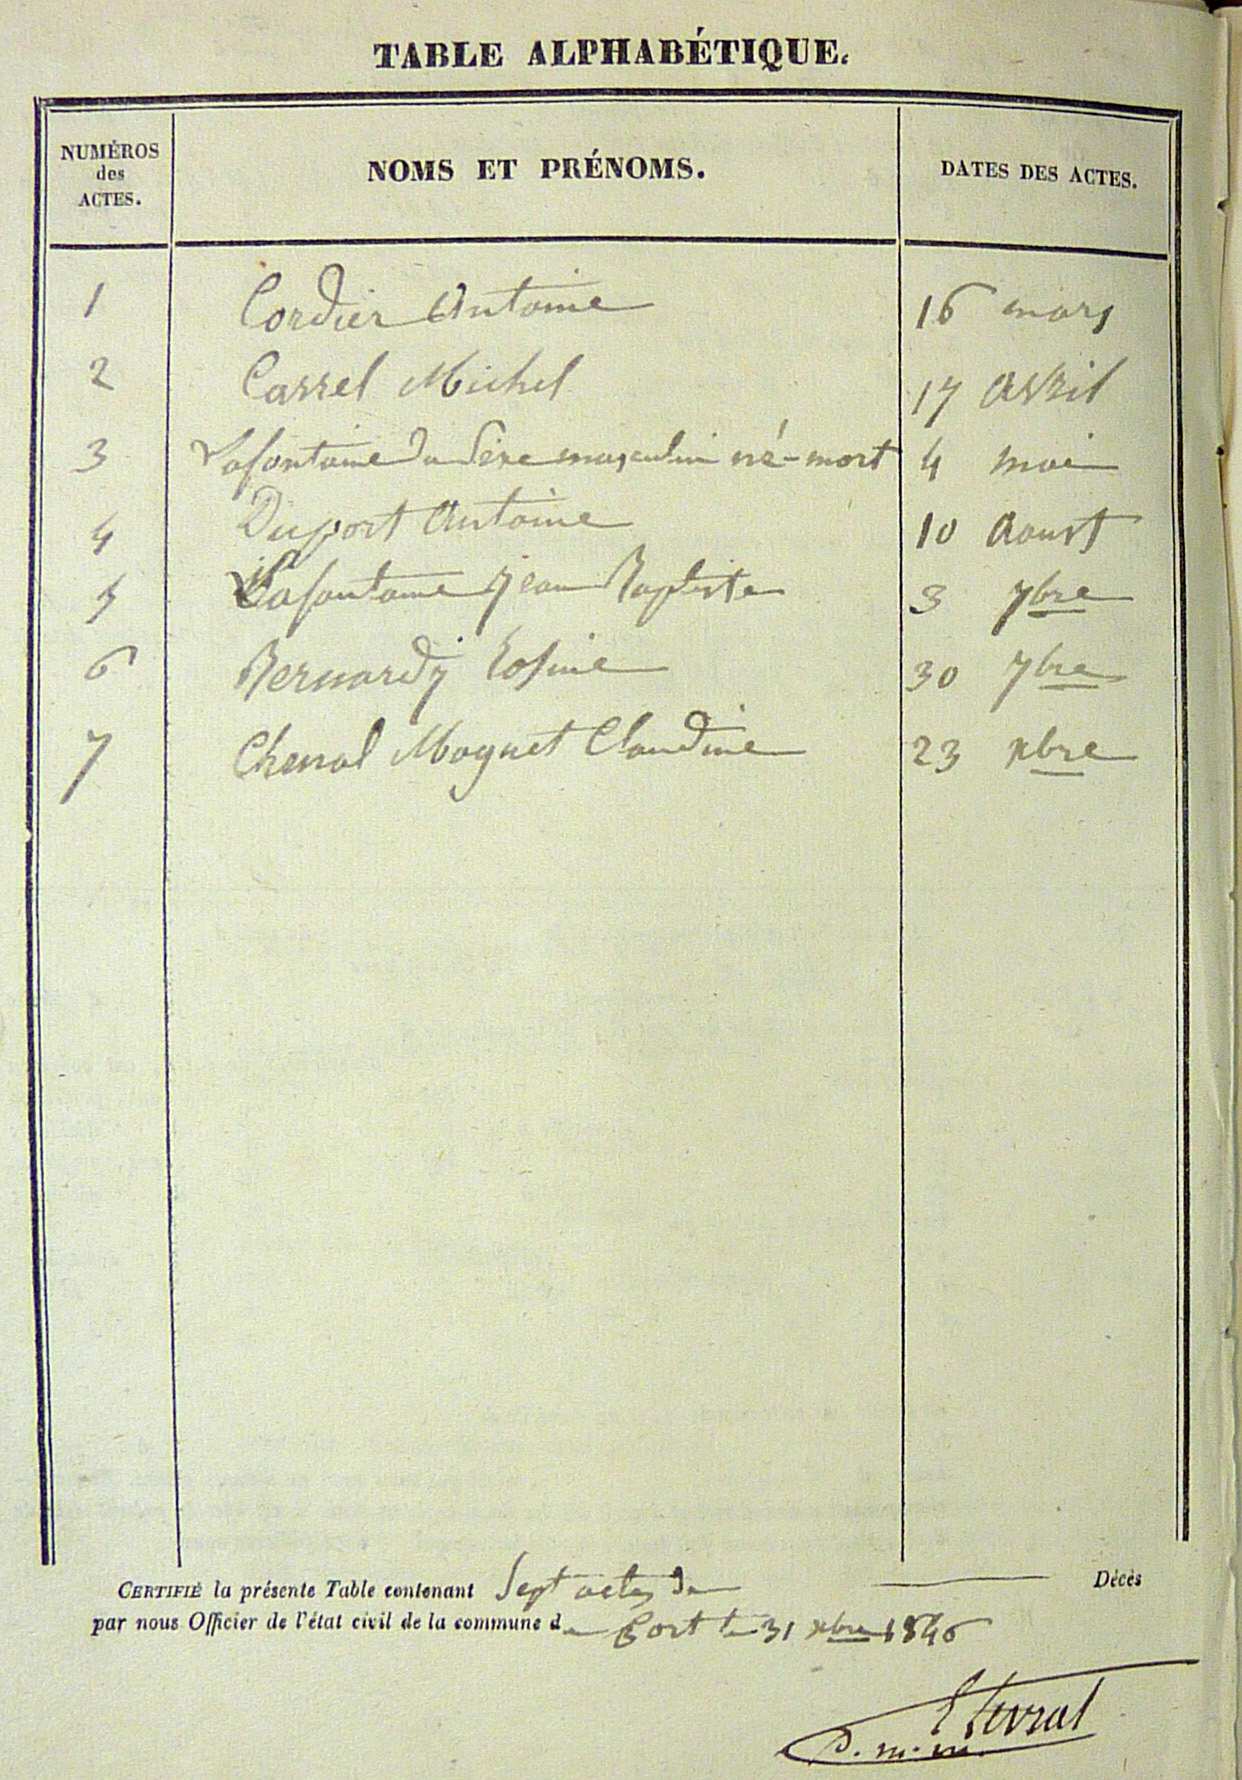 TABLE ALPHABÉTIQUE.
NUMÉROS des ACTES. NOMS ET PRÉNOMS. DATES DES ACTES.
1 Cordier Antoine 16 mars
2 Carrel Michel 17 Avril
3 Lafontaine du Sexe masculin né-mort 4 mai
4 Duport Antoine 10 Aoust
5 Lafontaine Jean Baptiste 3 7bre
6 Bernardy Rosine 30 7bre
7 Chenal Magnet Claudine 23 xbre
CERTIFIÉ la présente Table contenant Sept actes de Décès
par nous Officier de l'état civil de la commune de le 31 xbre 1846